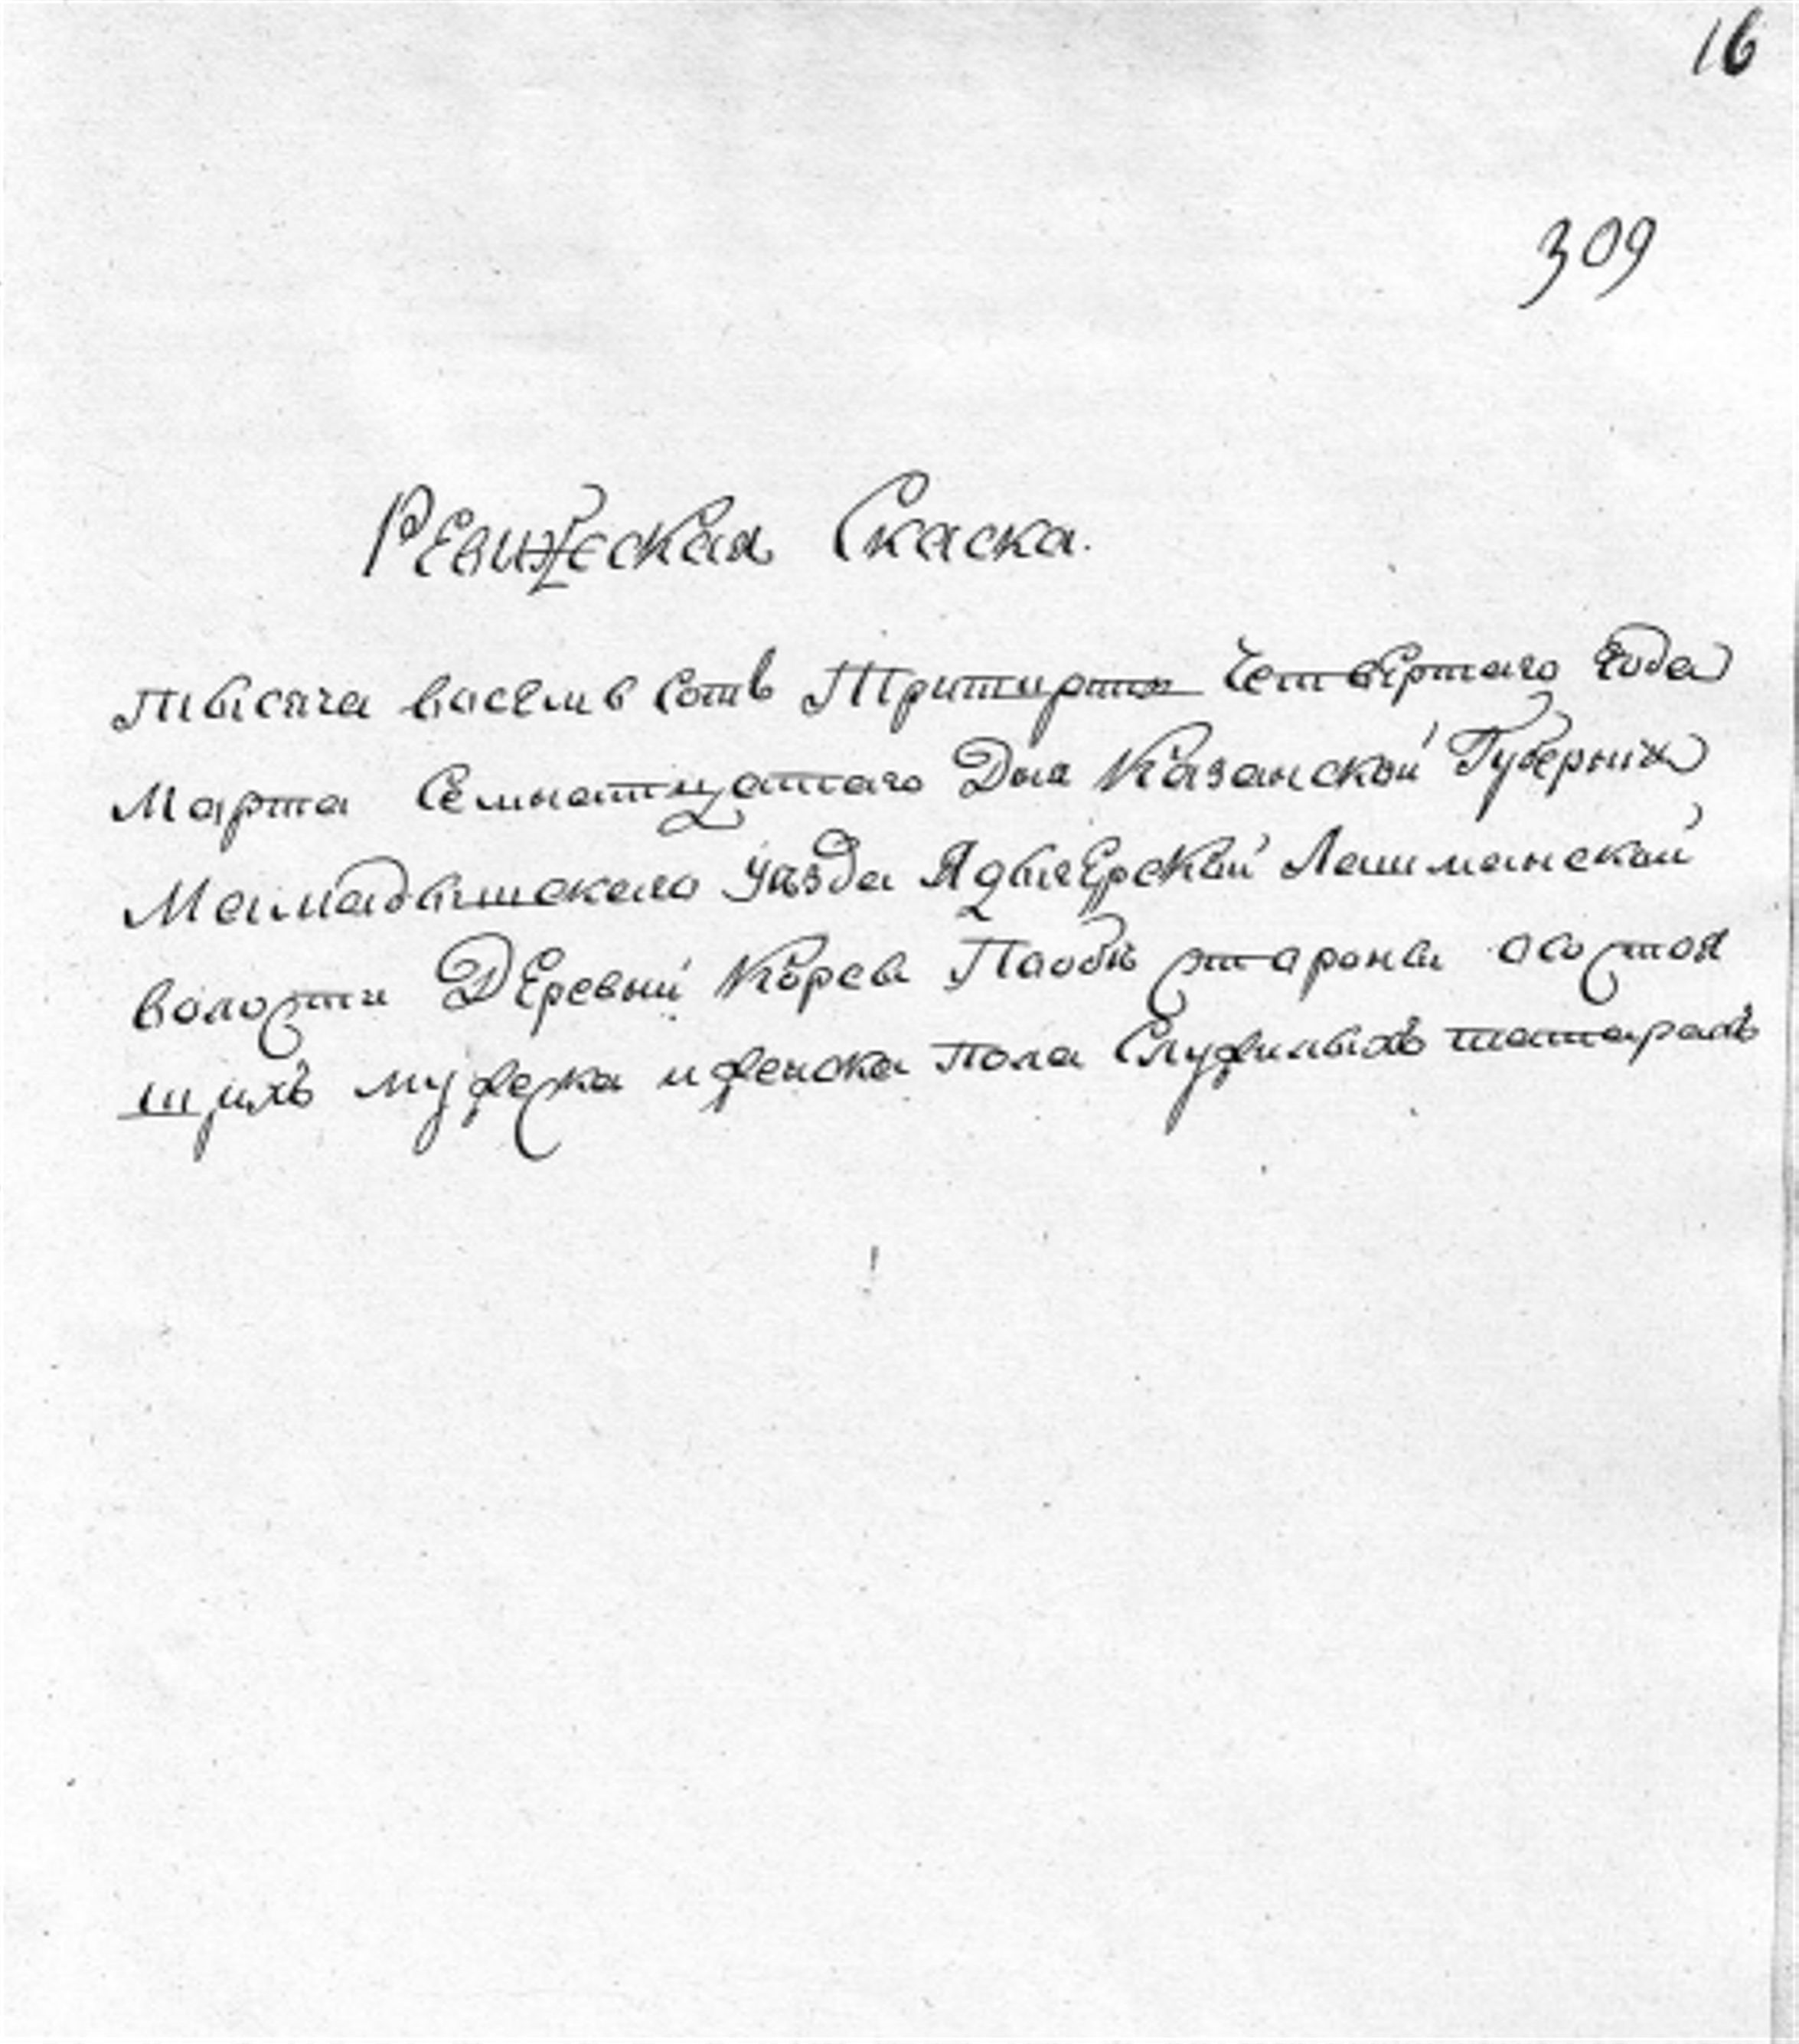 16
309
Ревижеская Скаска.
тысяча васемь сотъ Тритцрть Четвертаго Года
Марта Семнатцатаго Дня Казанской Губерніи
Мамадышскаго уѣзда Ядыгерской Лашманской
волости Деревни Корсы Паобѣ староны асостоя
щихъ мужеска ифенска пола Служилыхъ татарахъ